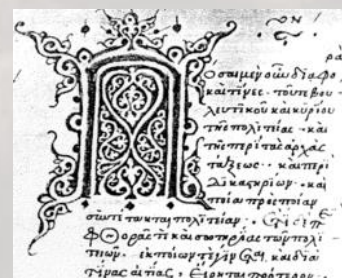 ον
ρα
Π όσαι μὲν οὖν διαφο
καὶ τίνες· τοῦ τε βου
λευτικοῦ καὶ κυρίου
τῆς πολιτείας· καὶ
τῆς περὶ τὰς ἀρχὰς
τάξεως· καὶ περὶ
δικαστηρίων· καὶ
ποία πρὸς ποίαν
συντέτακται πολιτείαν·
φθορᾶς τε καὶ σωτηρίας τῶν πολι
τειῶν· ἐκ ποίων τε γίν καὶ διὰ
τίνας αἰτίας, εἴρηται πρότερον.